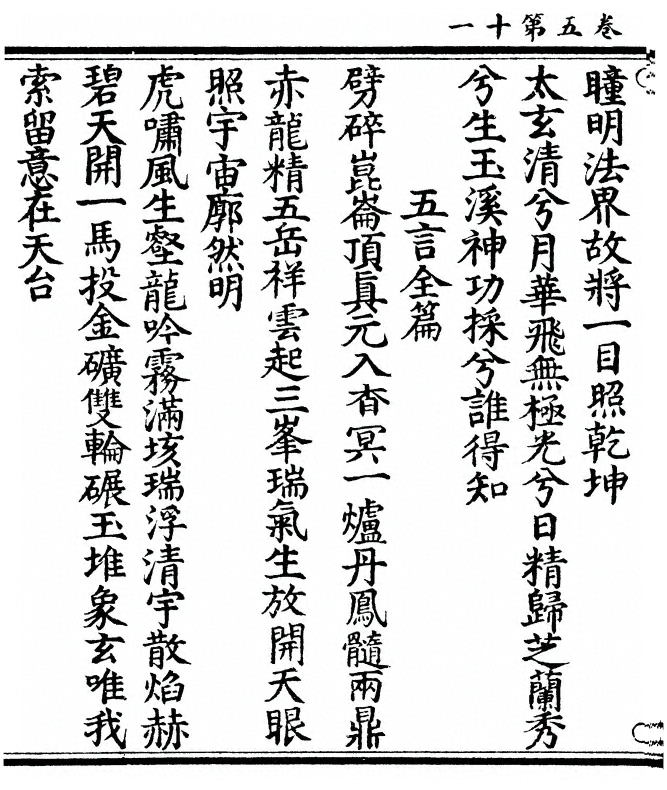 卷五第十一
瞳明法界故將一目照乾坤
太玄清兮月華飛無極光兮日精歸芝蘭秀
兮生玉溪神功採兮誰得知
五言全篇
劈碎崑崙頂眞元入杳冥一爐丹鳳髓兩鼎
赤龍精五岳祥雲起三峯瑞氣生放開天眼
照宇宙廓然明
虎嘯風生壑龍吟霧滿垓瑞浮清宇散焰赫
碧天開一馬投金礦雙輪碾玉堆象玄唯我
索留意在天台